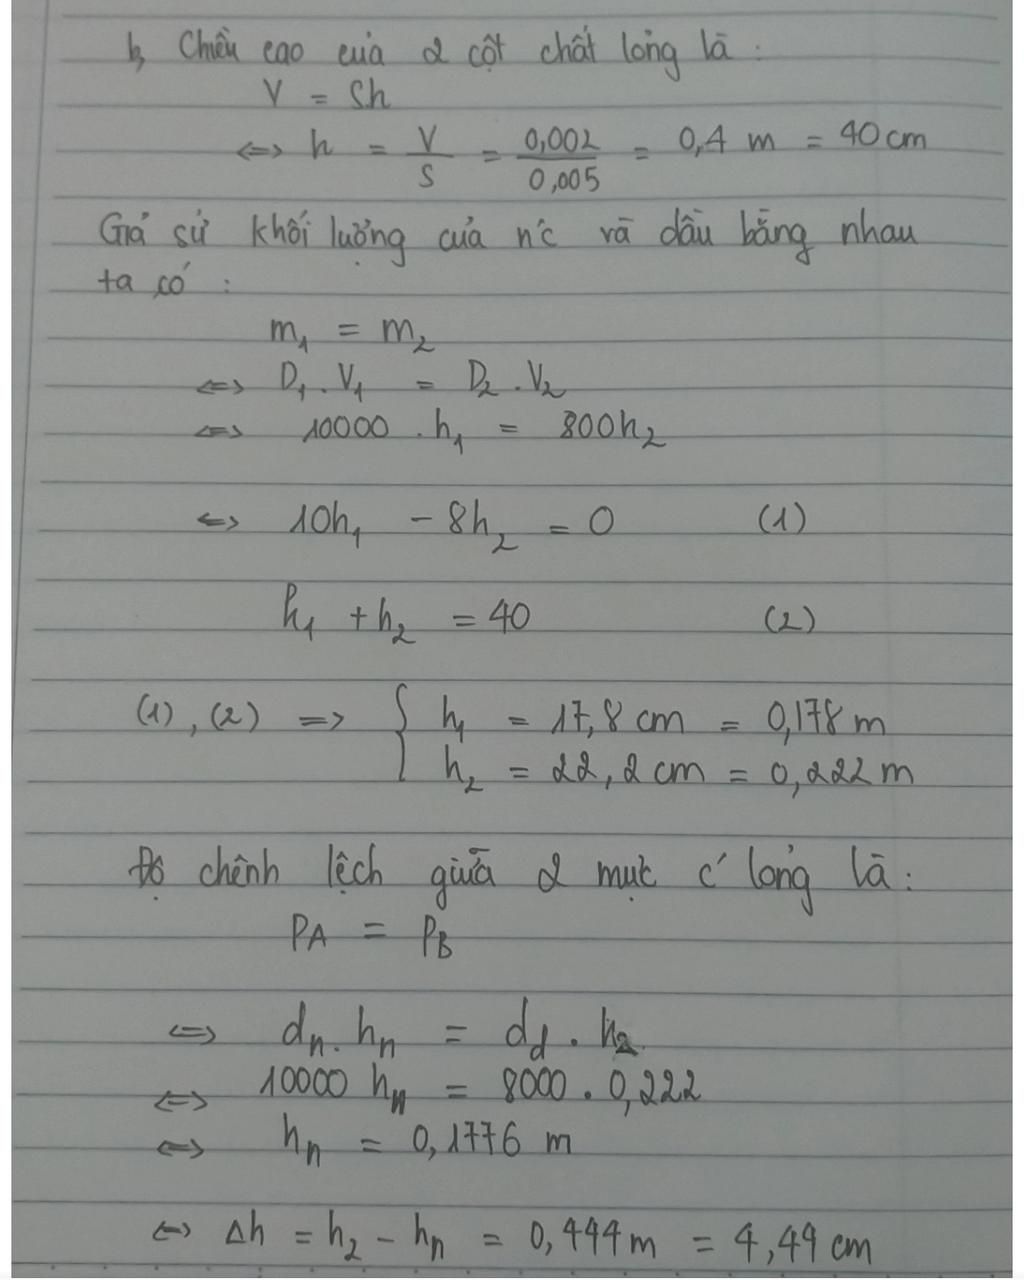 b, Chiều cao của 2 cột chất lỏng là :
V = Sh
<=> h = V/S = 0,002/0,005 = 0,4 m = 40 cm
Giả sử khối lượng của n'c và dầu bằng nhau
ta có :
m₁ = m₂
<=> D₁ . V₁ = D₂ . V₂
<=> 10000 . h₁ = 800h₂
<=> 10h₁ - 8h₂ = 0 (1)
h₁ + h₂ = 40 (2)
(1), (2) => { h₁ = 17,8 cm = 0,178 m
h₂ = 22,2 cm = 0,222 m
Độ chênh lệch giữa 2 mực c' lỏng là :
PA = PB
<=> dₙ . hₙ = d_d . h₂
<=> 10000 hₙ = 8000 . 0,222
<=> hₙ = 0,1776 m
<=> Δh = h₂ - hₙ = 0,444 m = 4,49 cm